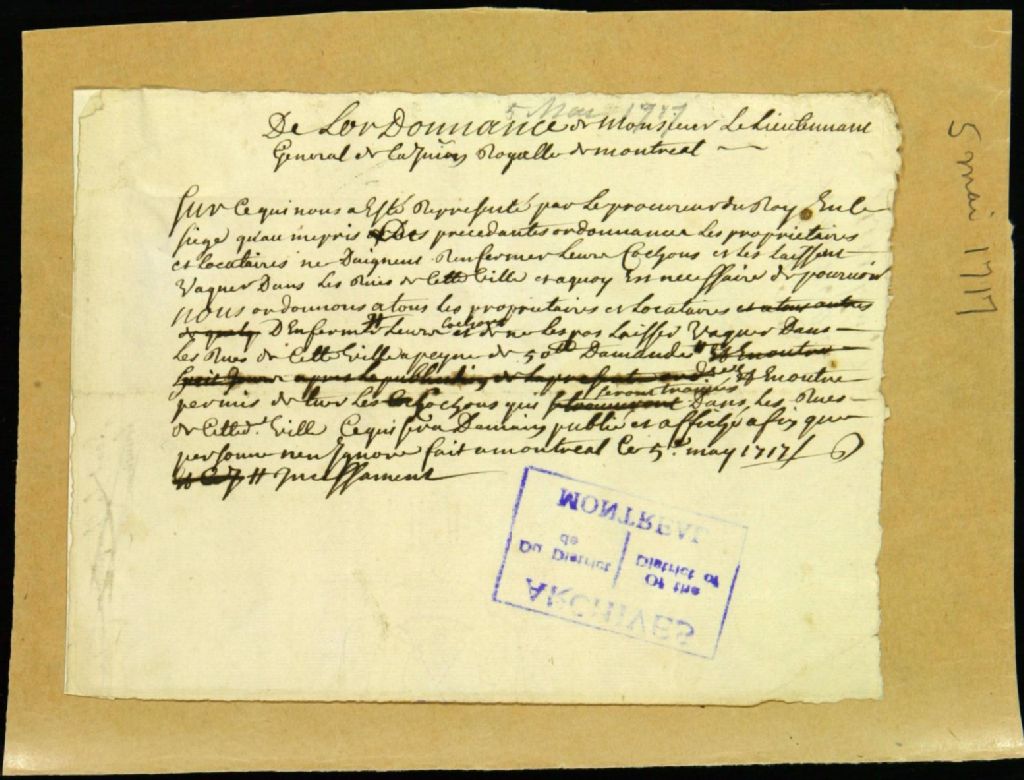 5 May 1717
De Lordonnance de Monsieur Le Lieutennant
General de la Juris Royalle de montreal
Sur Ce qui nous a Esté Represanté par Le procureur du Roy En Ce
siege qu'au mepris Des precedantes ordonnances Les proprietaires
et Locataires ne Daignent Renfermer Leurs Cochons et Les Laissent
Vaguer Dans Les Rues de Cette Ville et a quoy Est necessaire de pourvoir
nous ordonnons a tous Les proprietaires et Locataires et a tous autres
D'Enfermer # Leurs Cochons et de ne Les pas Laisser Vaguer Dans
Les Rues de Cette Ville a peyne de 50 ll Damande Et En outre
huit Jours apres la publication de la presente ord Et En outre
permis de tuer Les Cochons qui seront trouvés Dans Les Rues
de Cette d. Ville Ce qui sera Demain publié et affiché afin que
personne n'en Ignore fait a montreal Ce 5e. may 1717
# Incessament
ARCHIVES
Du District of the
de District of
MONTREAL
5 mai 1717